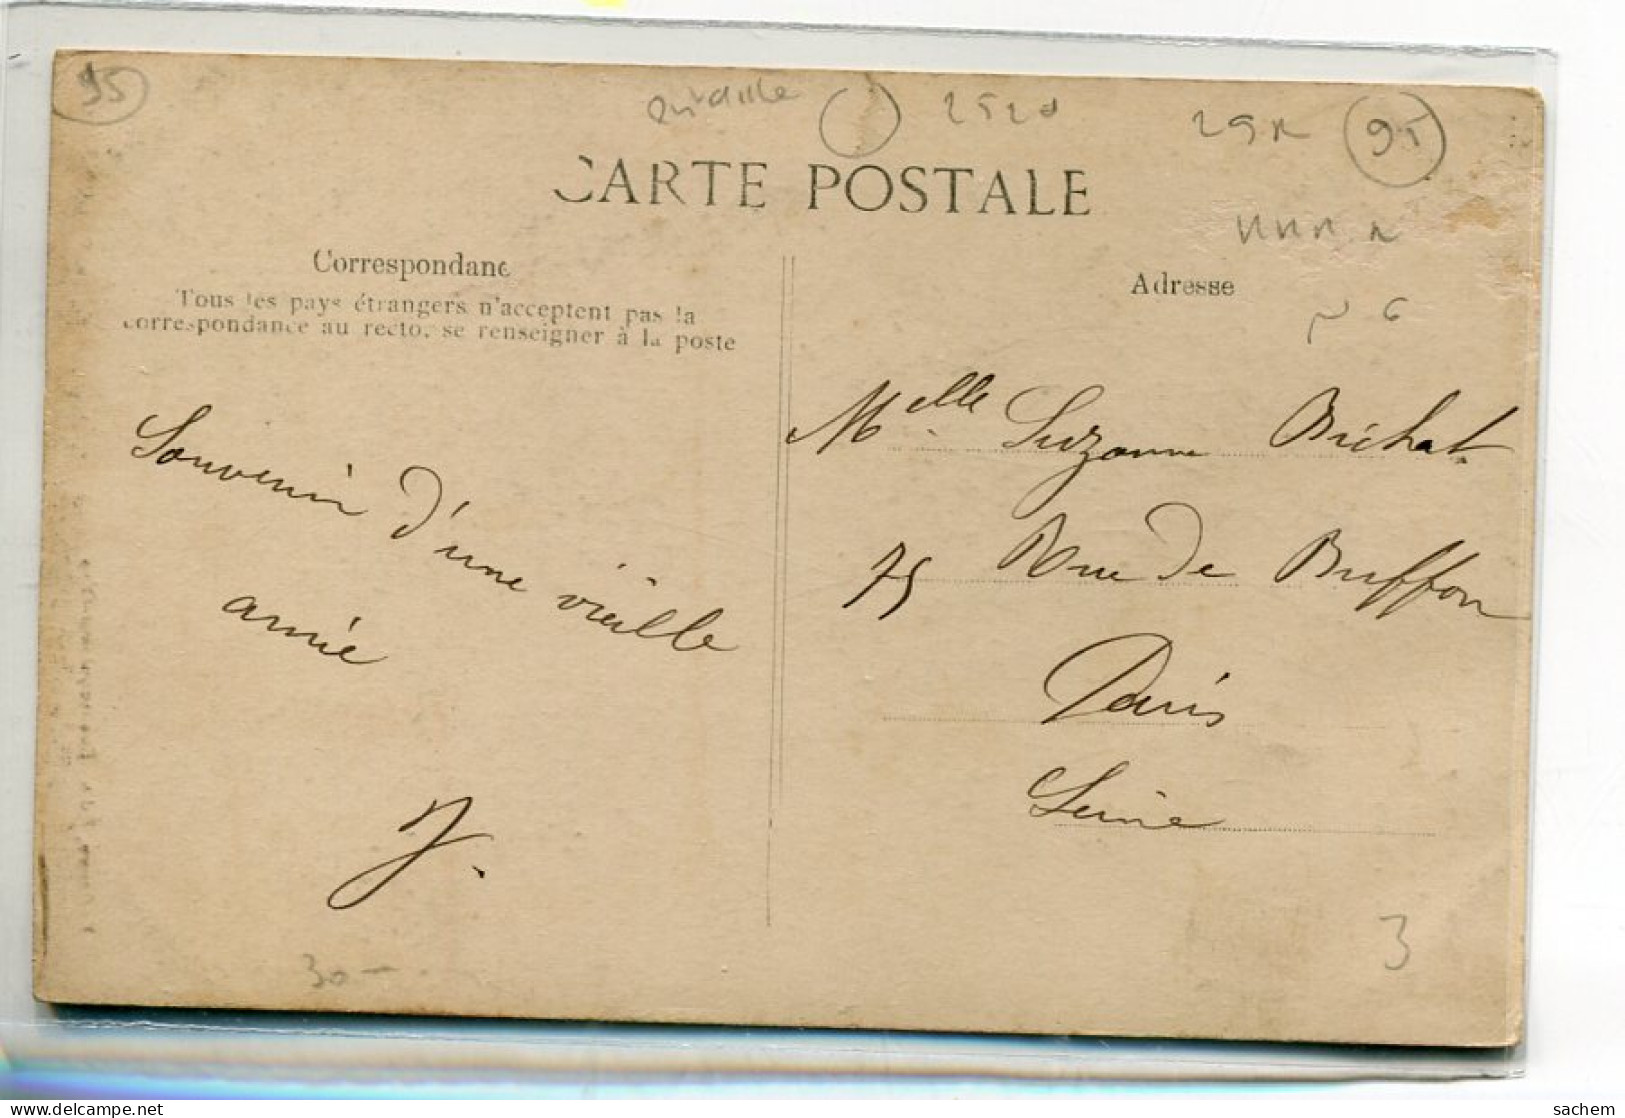 95
2520
95
CARTE POSTALE
Correspondanc
Tous les pays étrangers n'acceptent pas la
correspondance au recto, se renseigner à la poste
Souvenir d'une vieille
amie
J.
30 -
Adresse
Melle Suzanne Brichat
75 Rue de Buffon
Paris
Seine
3
delcampe.net
sachem